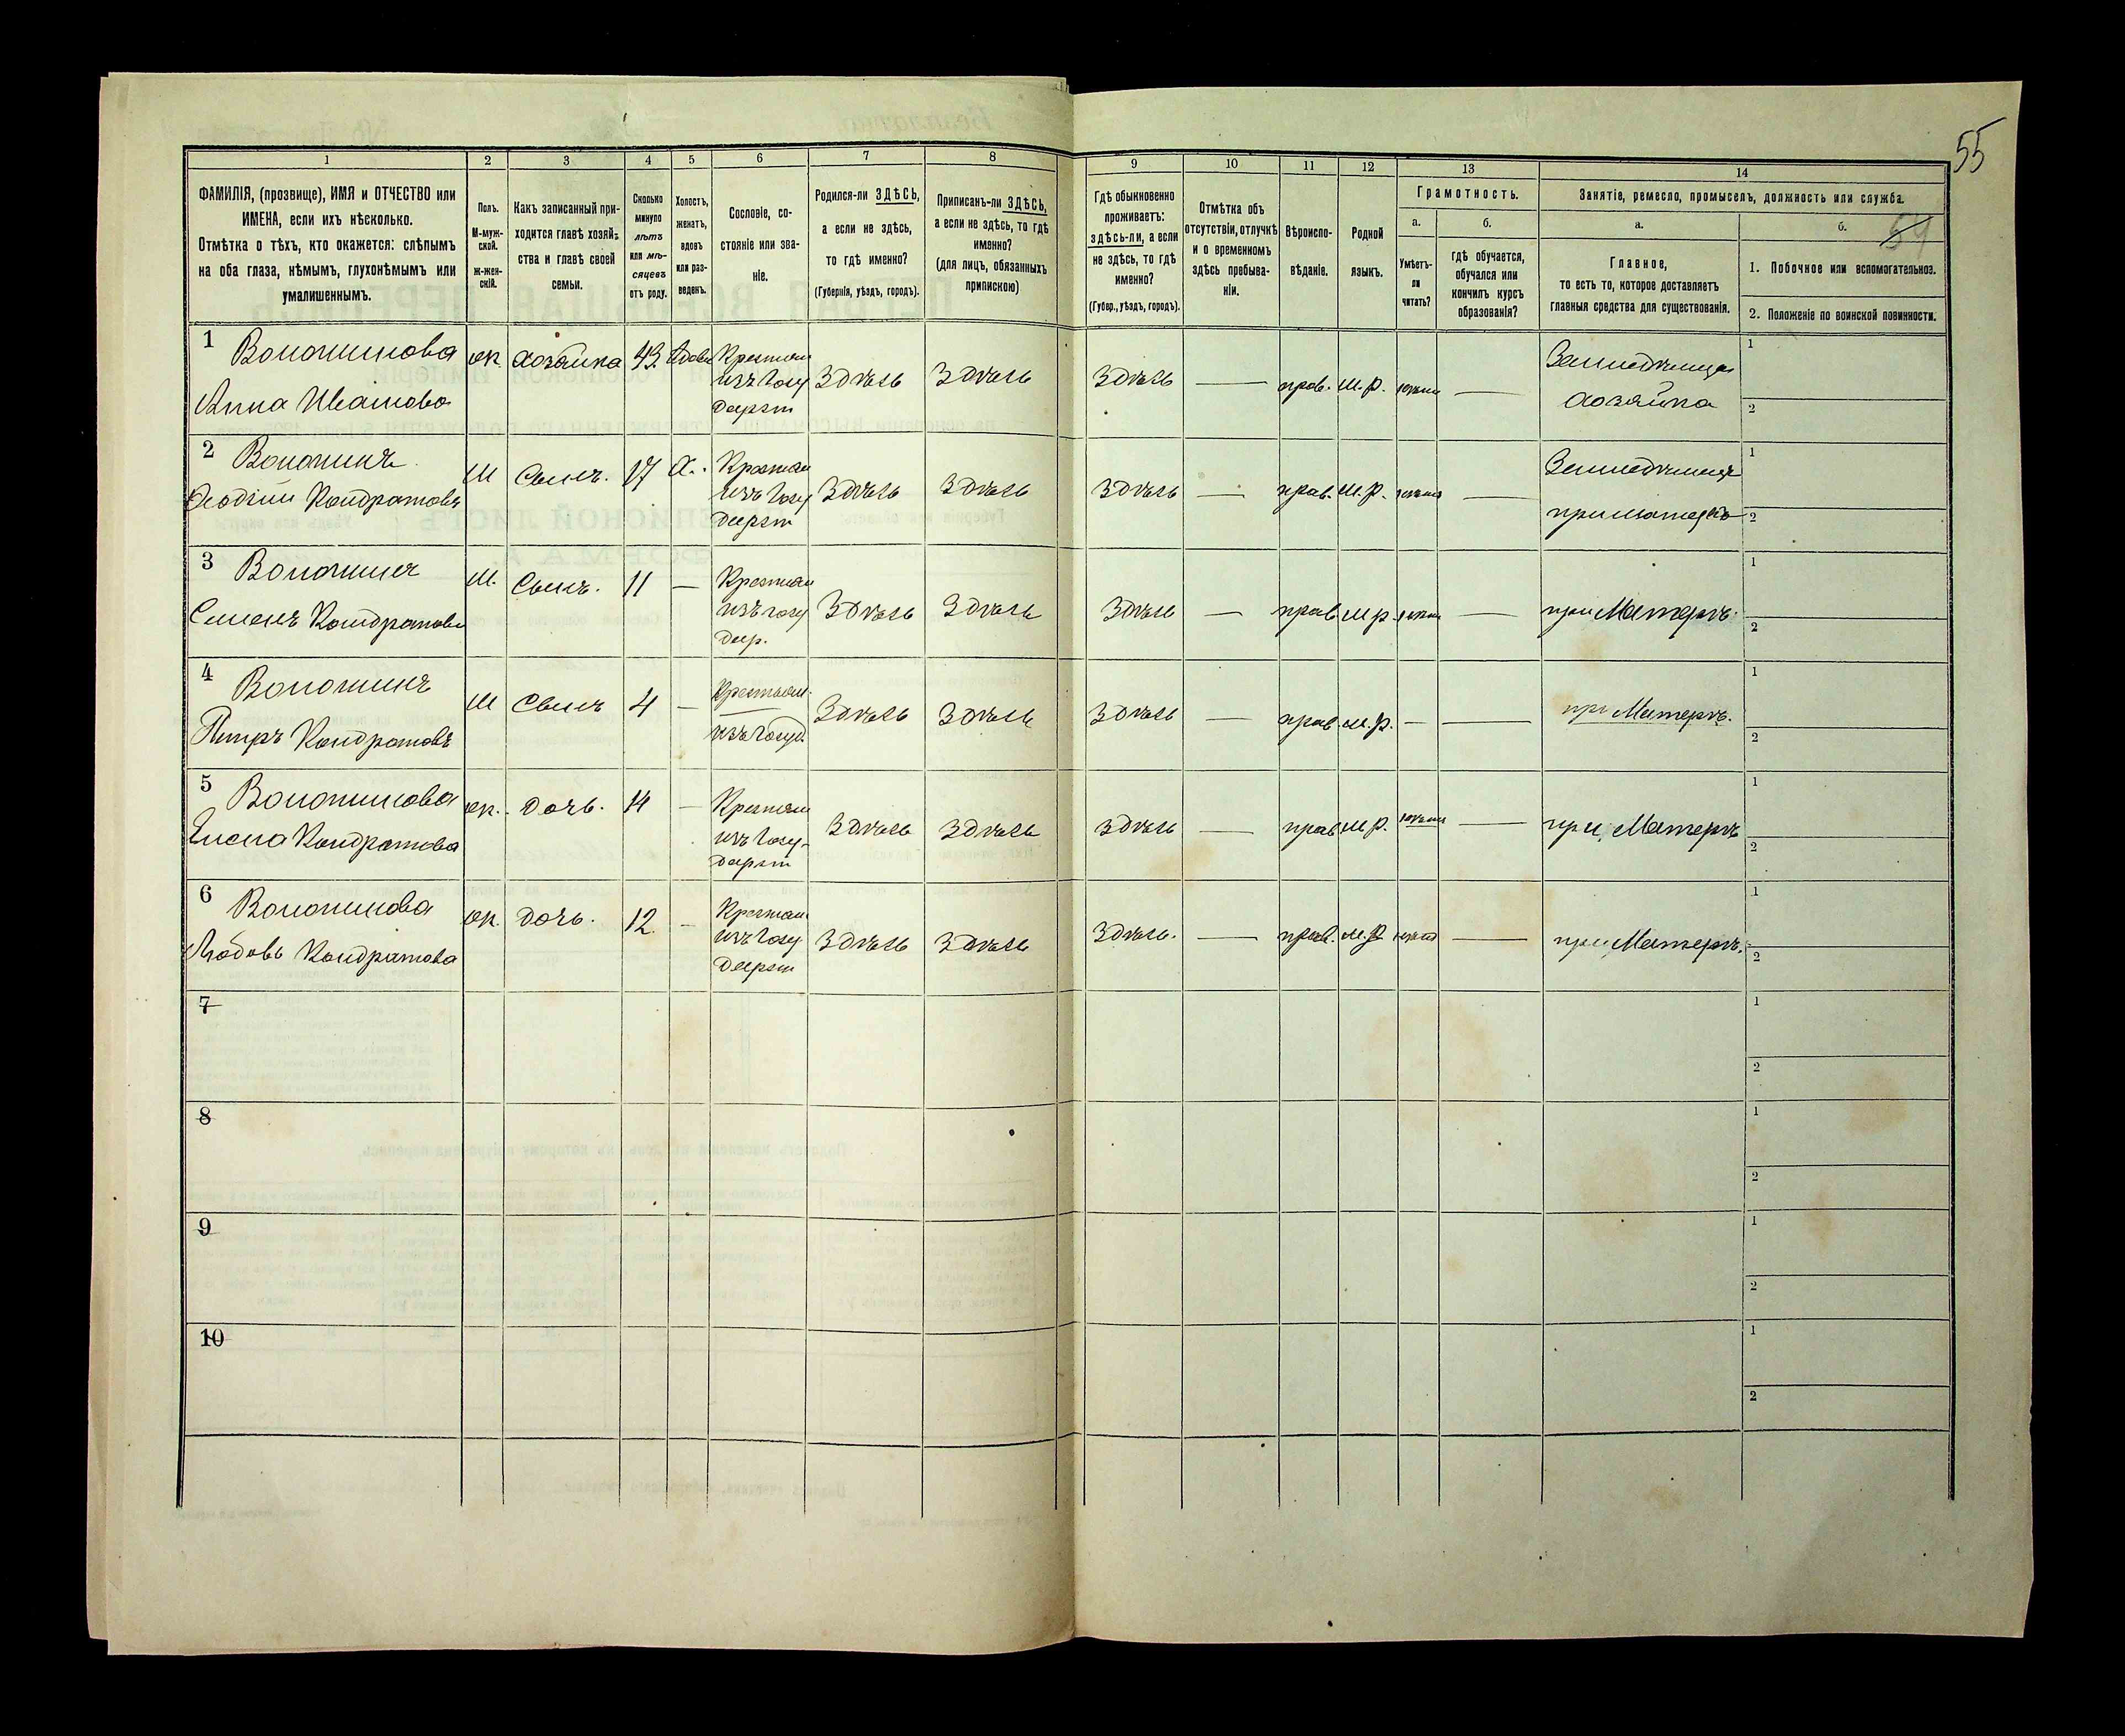 55
1 2 3 4 5 6 7 8 9 10 11 12 13 14
ФАМИЛІЯ, (прозвище), ИМЯ и ОТЧЕСТВО или
ИМЕНА, если ихъ нѣсколько.
Отмѣтка о тѣхъ, кто окажется: слѣпымъ
на оба глаза, нѣмымъ, глухонѣмымъ или
умалишеннымъ.
Полъ.
М-муж-
ской.
ж-жен-
скій.
Какъ записанный при-
ходится главѣ хозяй-
ства и главѣ своей
семьи.
Сколько
минуло
лѣтъ
или мѣ-
сяцевъ
отъ роду.
Холостъ,
женатъ,
вдовъ
или раз-
веденъ.
Сословіе, со-
стояніе или зва-
ніе.
Родился-ли ЗДѢСЬ,
а если не здѣсь,
то гдѣ именно?
(Губернія, уѣздъ, городъ).
Приписанъ-ли ЗДѢСЬ,
а если не здѣсь, то гдѣ
именно?
(для лицъ, обязанныхъ
припискою)
Гдѣ обыкновенно
проживаетъ:
здѣсь-ли, а если
не здѣсь, то гдѣ
именно?
(Губер., уѣздъ, городъ).
Отмѣтка объ
отсутствіи, отлучкѣ
и о временномъ
здѣсь пребыва-
ніи.
Вѣроиспо-
вѣданіе.
Родной
языкъ.
Грамотность.
а.
Умѣетъ-
ли
читать?
б.
гдѣ обучается,
обучался или
кончилъ курсъ
образованія?
Занятіе, ремесло, промыселъ, должность или служба.
а.
Главное,
то есть то, которое доставляетъ
главныя средства для существованія.
б.
1. Побочное или вспомогательное.
2. Положеніе по воинской повинности.
1 Волошинова
Анна Иванова
ж. хозяйка 43 вдова Крестьян
изъ госу
дарст
Здѣсь Здѣсь Здѣсь — прав. м.р. —
Землед
хозяйка
1
2
2 Волошинъ
Кондратовъ
М Сынъ. 17 х. Крестьян
изъ госу
дарст
Здѣсь Здѣсь Здѣсь — прав. м.р. —
Землед
при матерѣ
1
2
3 Волошинъ
Семенъ Кондратовъ
М. Сынъ. 11 — Крестьян
изъ госу
дар.
Здѣсь Здѣсь Здѣсь — прав. м.р. —
при Матерѣ.
1
2
4 Волошинъ
Петръ Кондратовъ
М Сынъ 4 — Крестьян.
изъ госуд.
Здѣсь Здѣсь Здѣсь — прав. м.р. — —
при Матерѣ.
1
2
5 Волошинова
Кондратова
ж. дочь. 14 — Крестьян
изъ госу-
дарст
Здѣсь Здѣсь Здѣсь — прав. м.р. —
при Матерѣ
1
2
6 Волошинова
Любовь Кондратова
ж. дочь. 12 — Крестьян
изъ госу
дарст
Здѣсь Здѣсь Здѣсь. — прав. м.р. —
при Матерѣ.
1
2
7
1
2
8
1
2
9
1
2
10
1
2